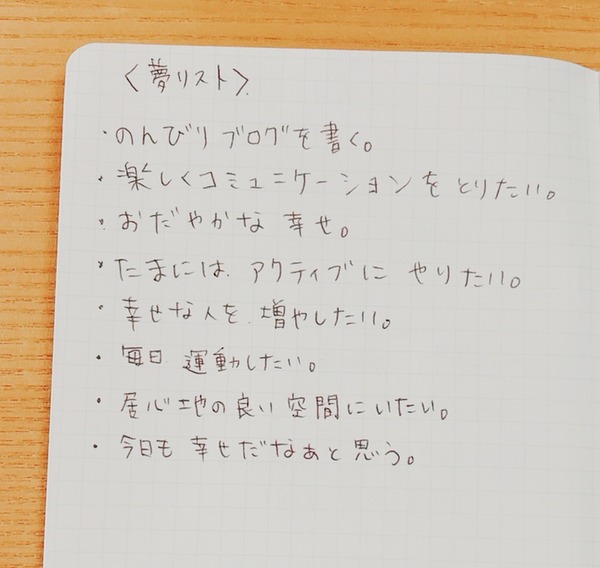 〈夢リスト〉
・のんびりブログを書く。
・楽しくコミュニケーションをとりたい。
・おだやかな幸せ。
・たまには、アクティブにやりたい。
・幸せな人を、増やしたい。
・毎日運動したい。
・居心地の良い空間にいたい。
・今日も幸せだなぁと思う。